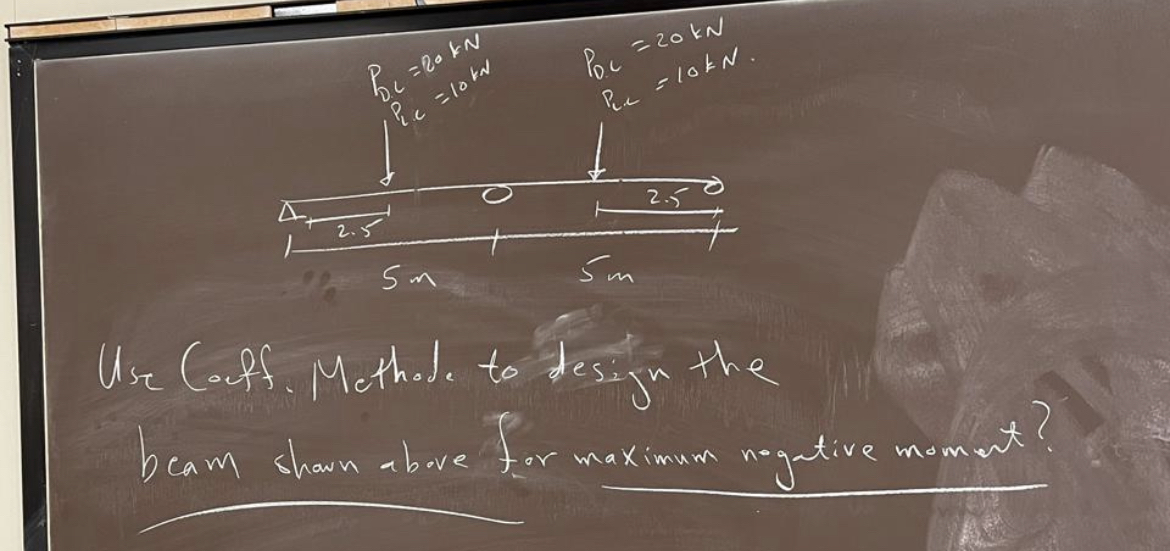 P_D.L = 20 kN
P_L.L = 10 kN
P_D.L = 20 kN
P_L.L = 10 kN.
2.5
2.5
5m
5m
Use Coeff. Method. to design the
beam shown above for maximum negative moment?